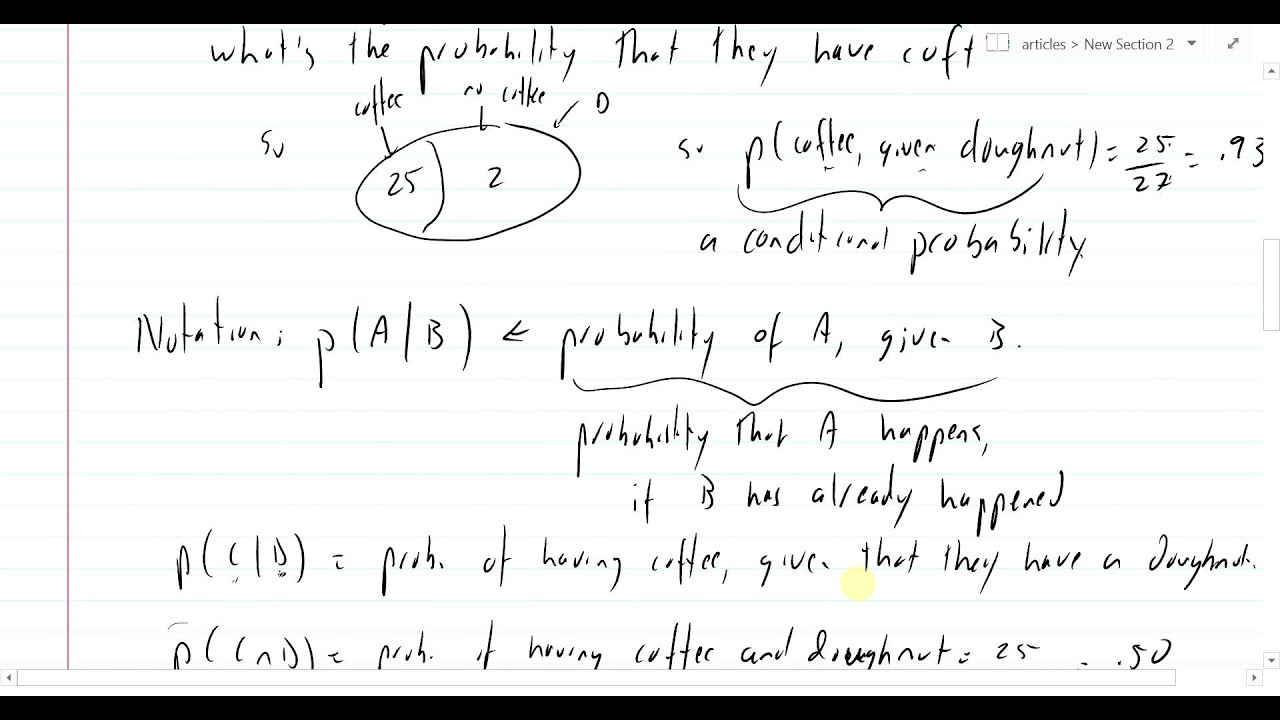 what's the probability that they have coff
articles > New Section 2
coffee
no coffee
D
So
25
2
so p(coffee, given doughnut) = 25/27 = .93
a conditional probability
Notation: p(A|B) ← probability of A, given B.
probability that A happens,
if B has already happened
p(C|D) = prob. of having coffee, given that they have a doughnut.
p(C∩D) = prob. of having coffee and doughnut = 25 = .50